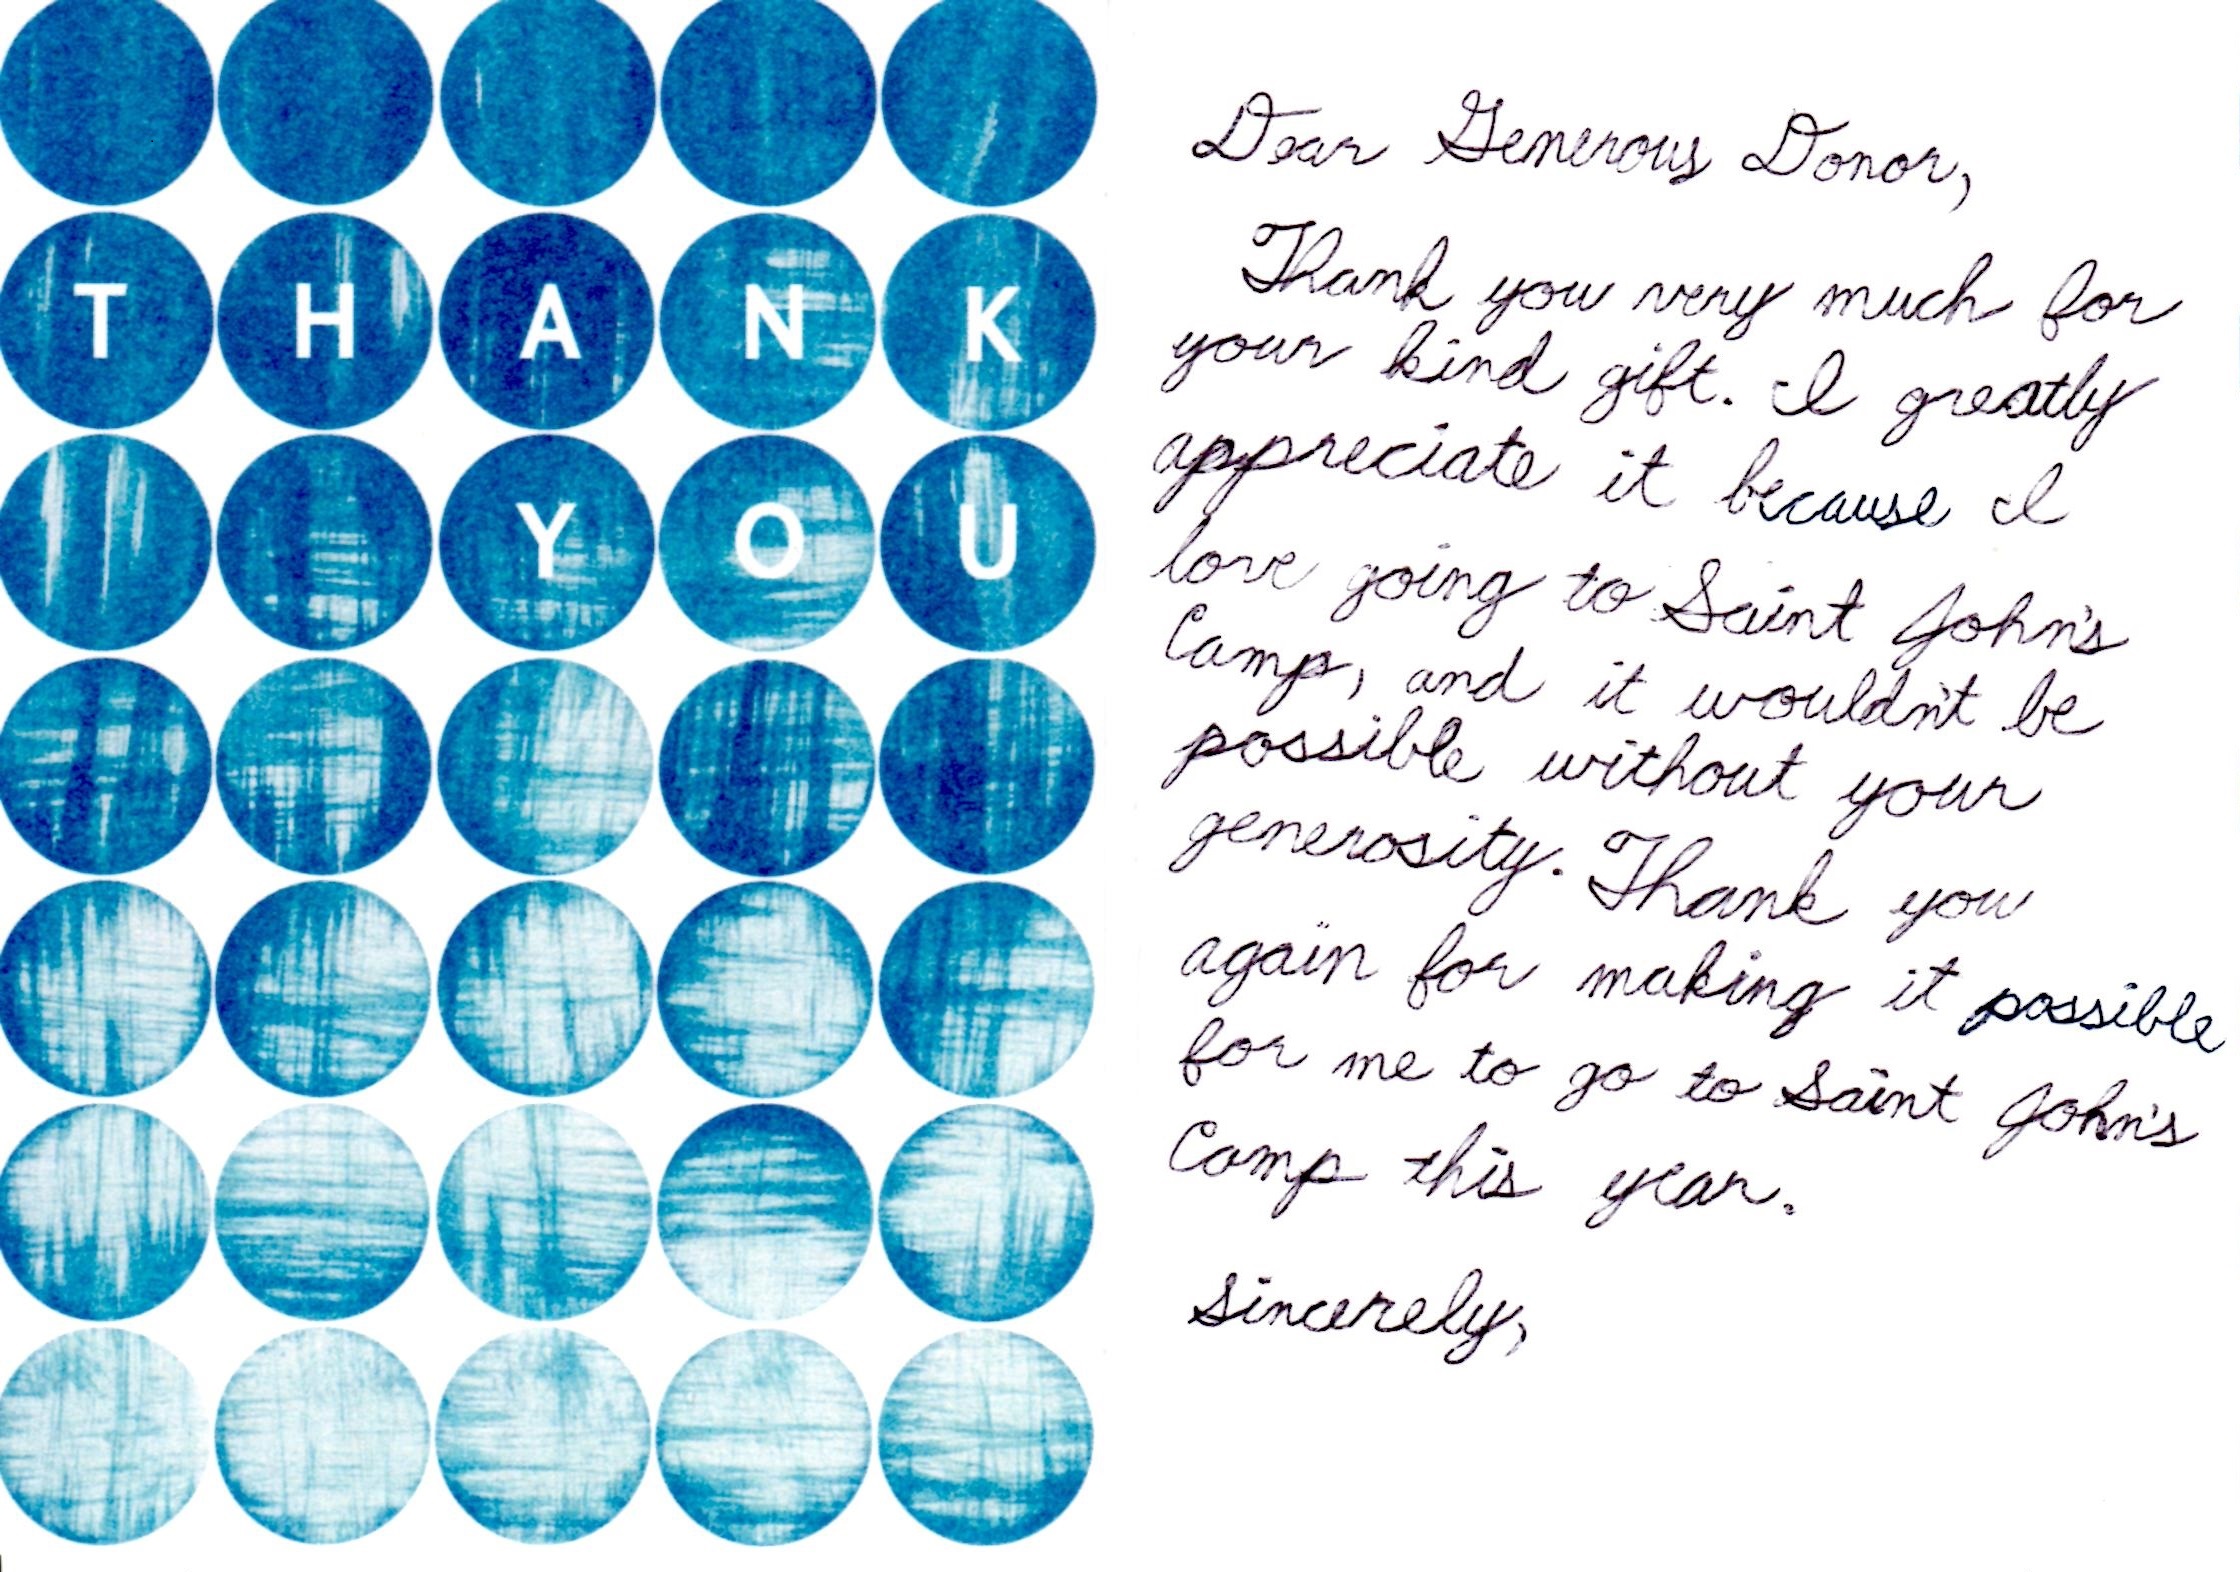 THANK
YOU
Dear Generous Donor,
Thank you very much for
your kind gift. I greatly
appreciate it because I
love going to Saint John's
Camp, and it wouldn't be
possible without your
generosity. Thank you
again for making it possible
for me to go to Saint John's
Camp this year.
Sincerely,